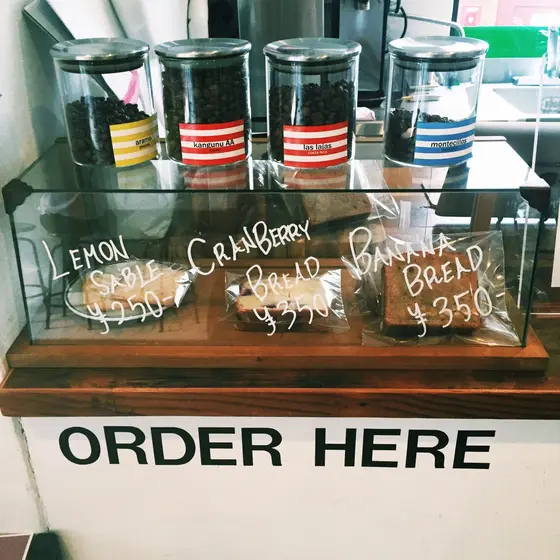 aramo
kangunu AA
las lajas
COSTA RICA
montecillos
LEMON
SABLE
¥250-
CRANBERRY
BREAD
¥350
BANANA
BREAD
¥350
ORDER HERE